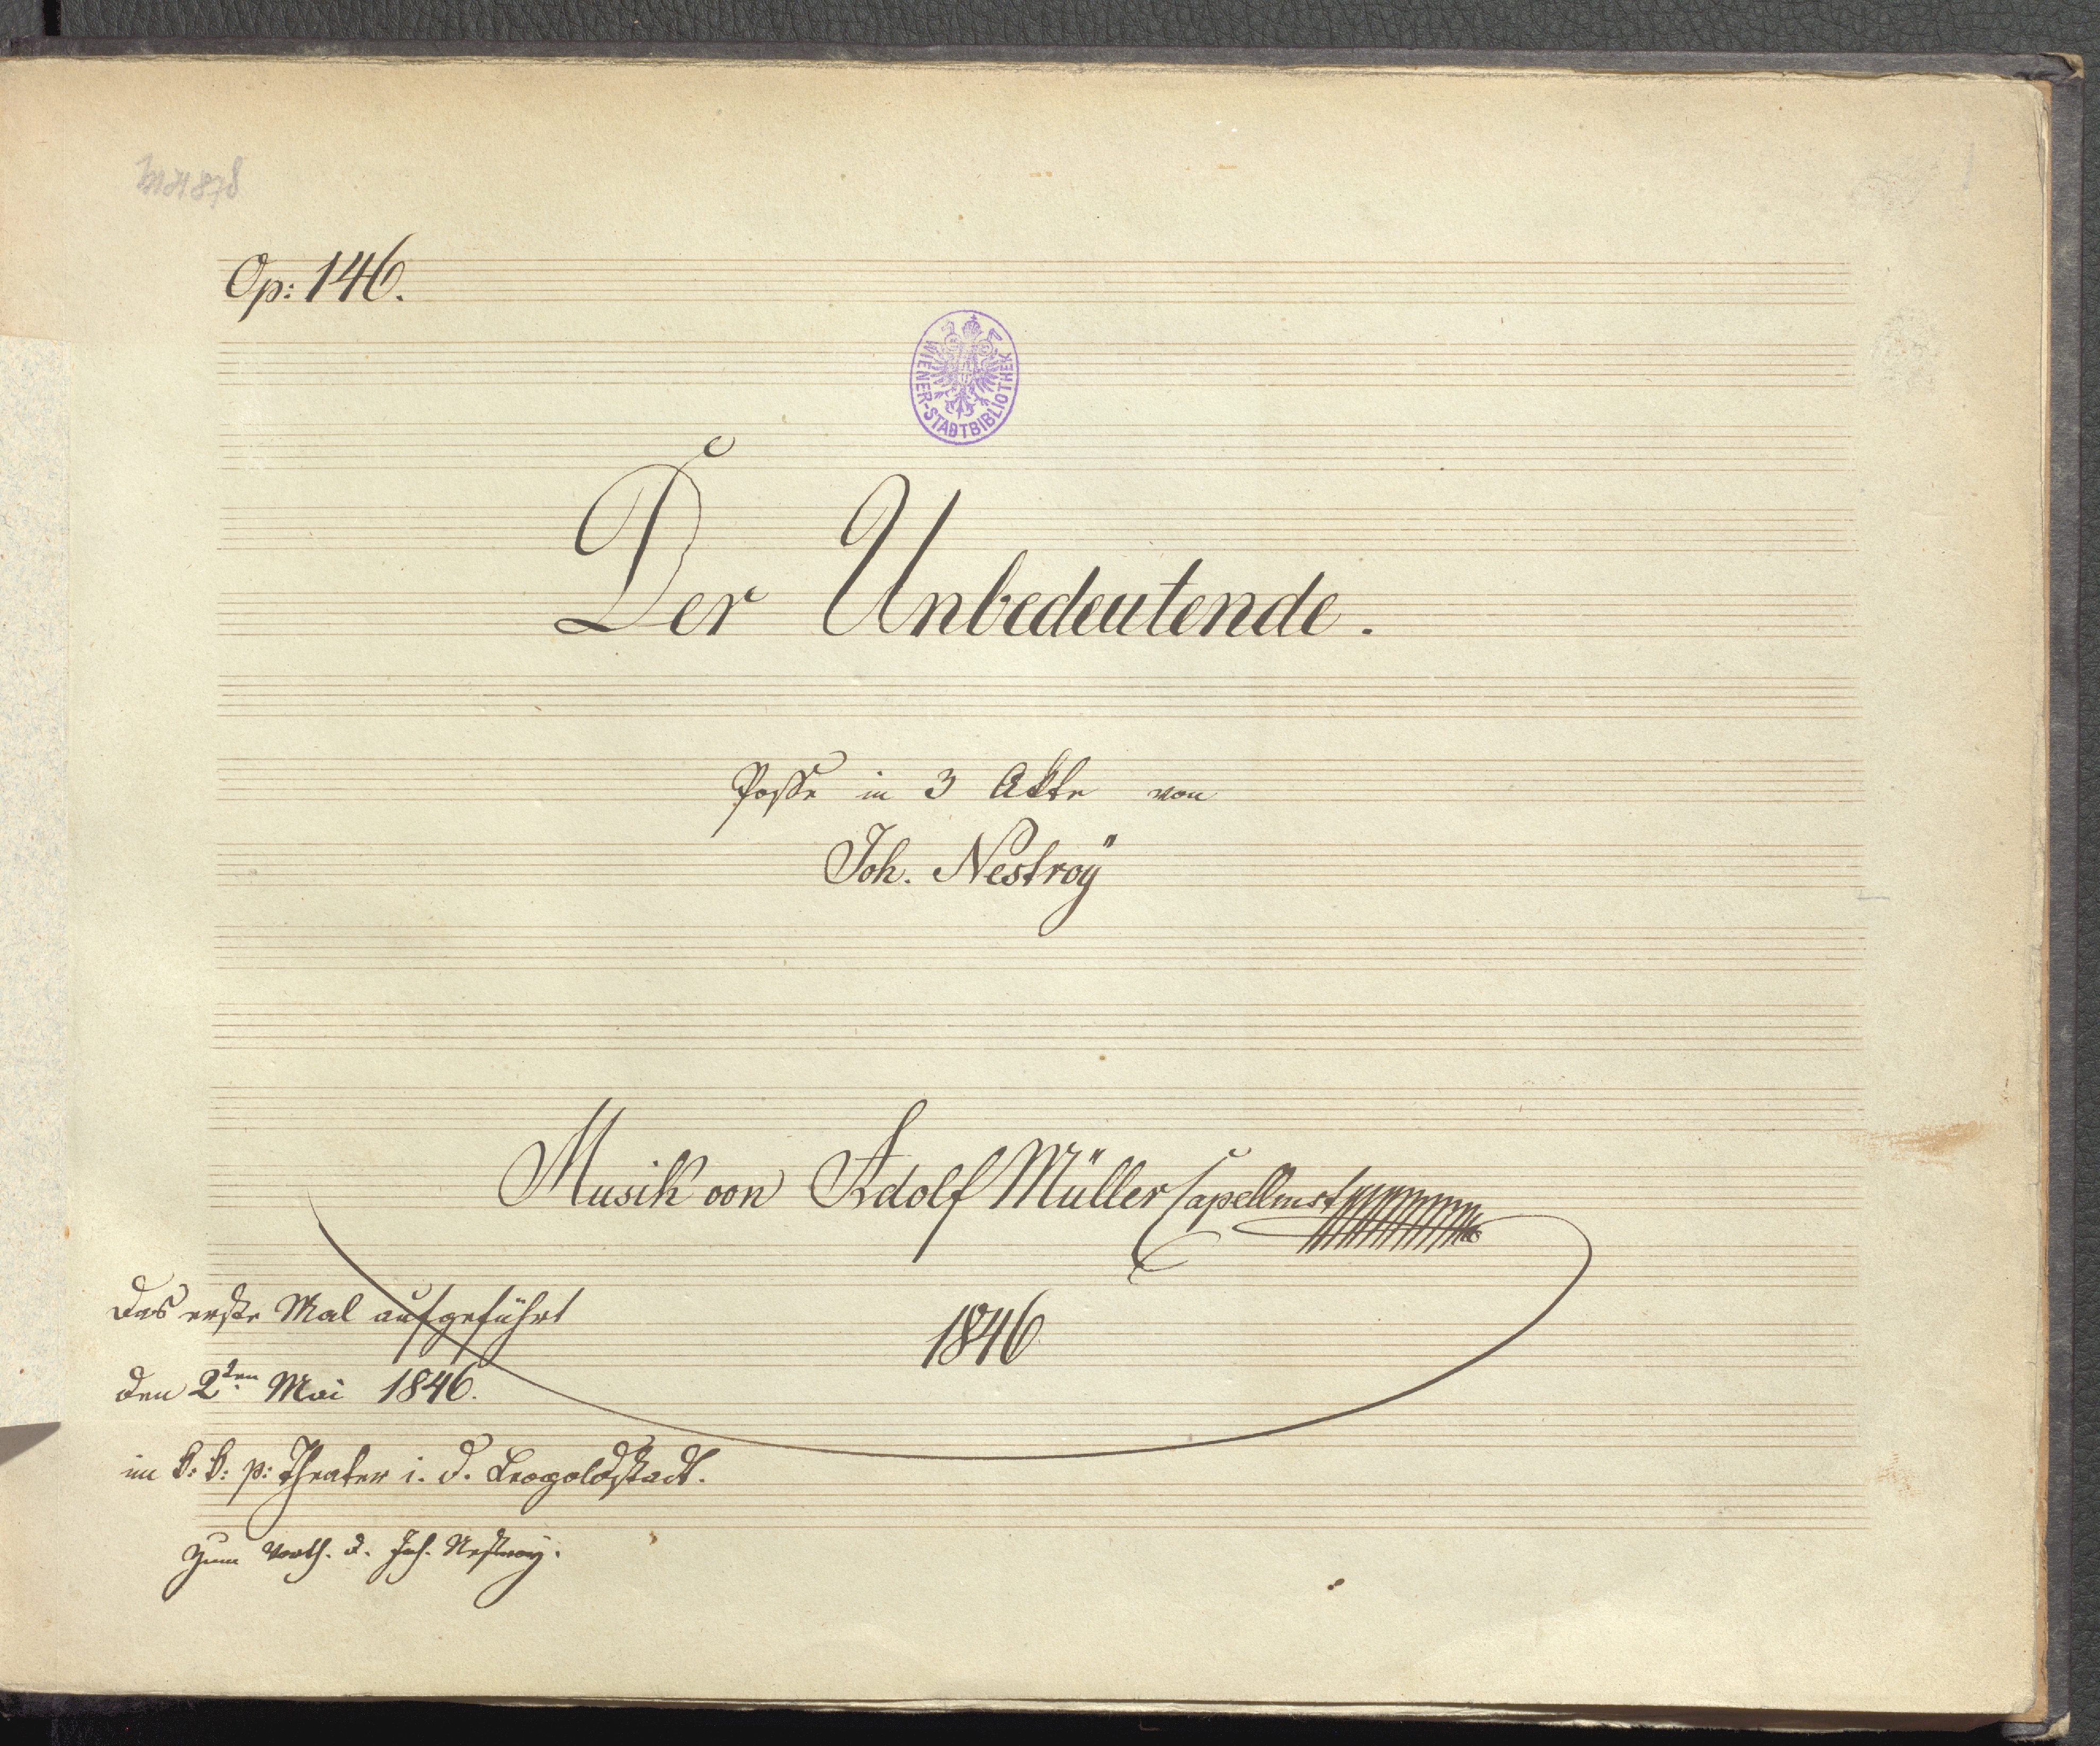 MH 878
Op: 146.
WIENER-STADTBIBLIOTHEK
Der Unbedeutende.
Posse in 3 Akte von
Joh. Nestroÿ
Musik von Adolf Müller Capellmst
1846
Das erste Mal aufgeführt
den 2ten Mai 1846.
im k: k: p: Theater i. d. Leopoldstadt.
zum Vorth. d. Joh. Nestroy.